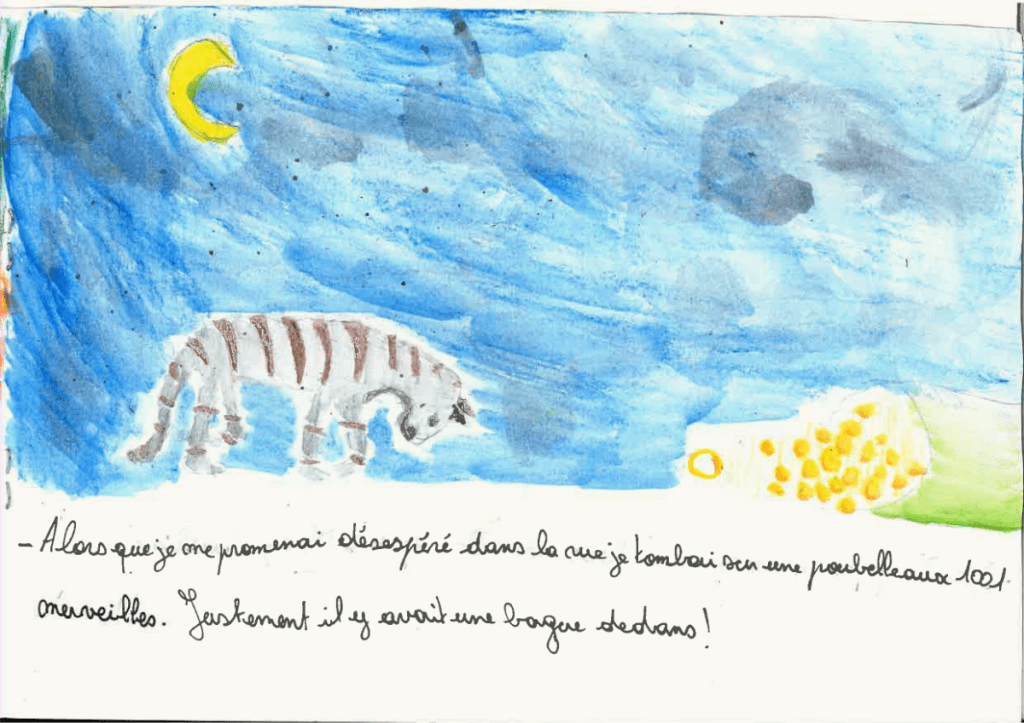 - Alors que je me promenai désespéré dans la rue je tombai sur une poubelle aux 1001
merveilles. Justement il y avait une bague dedans !